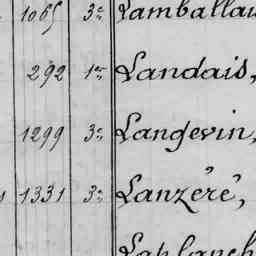 1065 3e Lamballais
292 1re Landais,
1299 3e Langevin,
1331 3e Lanzéré,